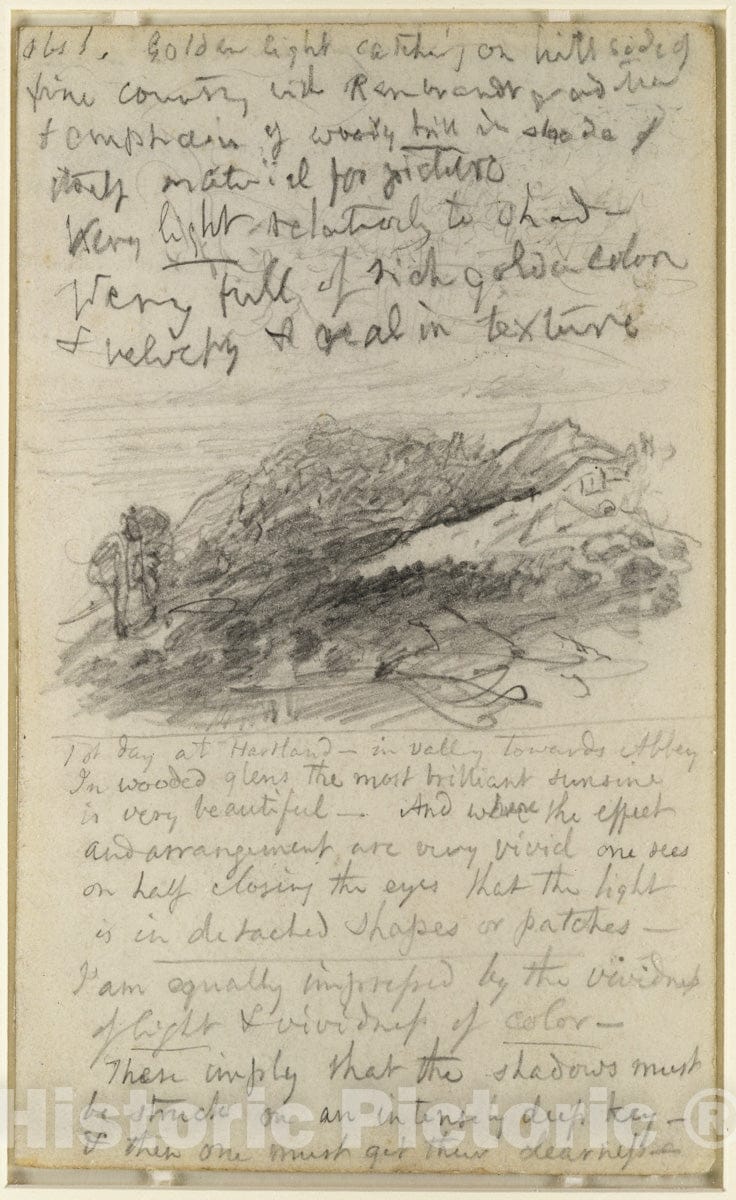 obs 1. Golden light catching on hill side of
fine country with Rembrandt
& emphasis of woody hill in shade
itself material for picture
Very light relatively to shad—
Very full of rich golden color
& velvety & real in texture
1st day at Hartland— in valley towards Abbey
In wooded glens the most brilliant sunsine
is very beautiful—. And where the effect
and arrangement are very vivid one sees
on half closing the eyes that the light
is in detached shapes or patches—
I am equally impressed by the vividness
of light & vividness of color—
These imply that the shadows must
be struck on an intensely deep key—
& then one must get their clearness—
Historic Pictoric ®